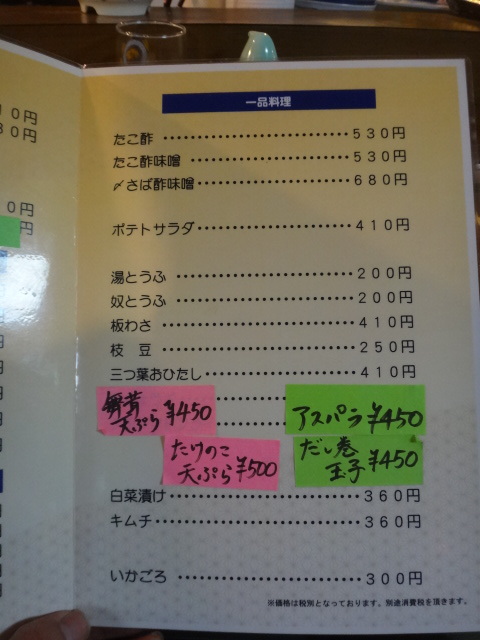 10円
30円
0円
円
一品料理
たこ酢 530円
たこ酢味噌 530円
〆さば酢味噌 680円
ポテトサラダ 410円
湯とうふ 200円
奴とうふ 200円
板わさ 410円
枝豆 250円
三つ葉おひたし 410円
舞茸
天ぷら ¥450
アスパラ ¥450
たけのこ
天ぷら ¥500
だし巻
玉子 ¥450
白菜漬け 360円
キムチ 360円
いかごろ 300円
※価格は税別となっております。別途消費税を頂きます。